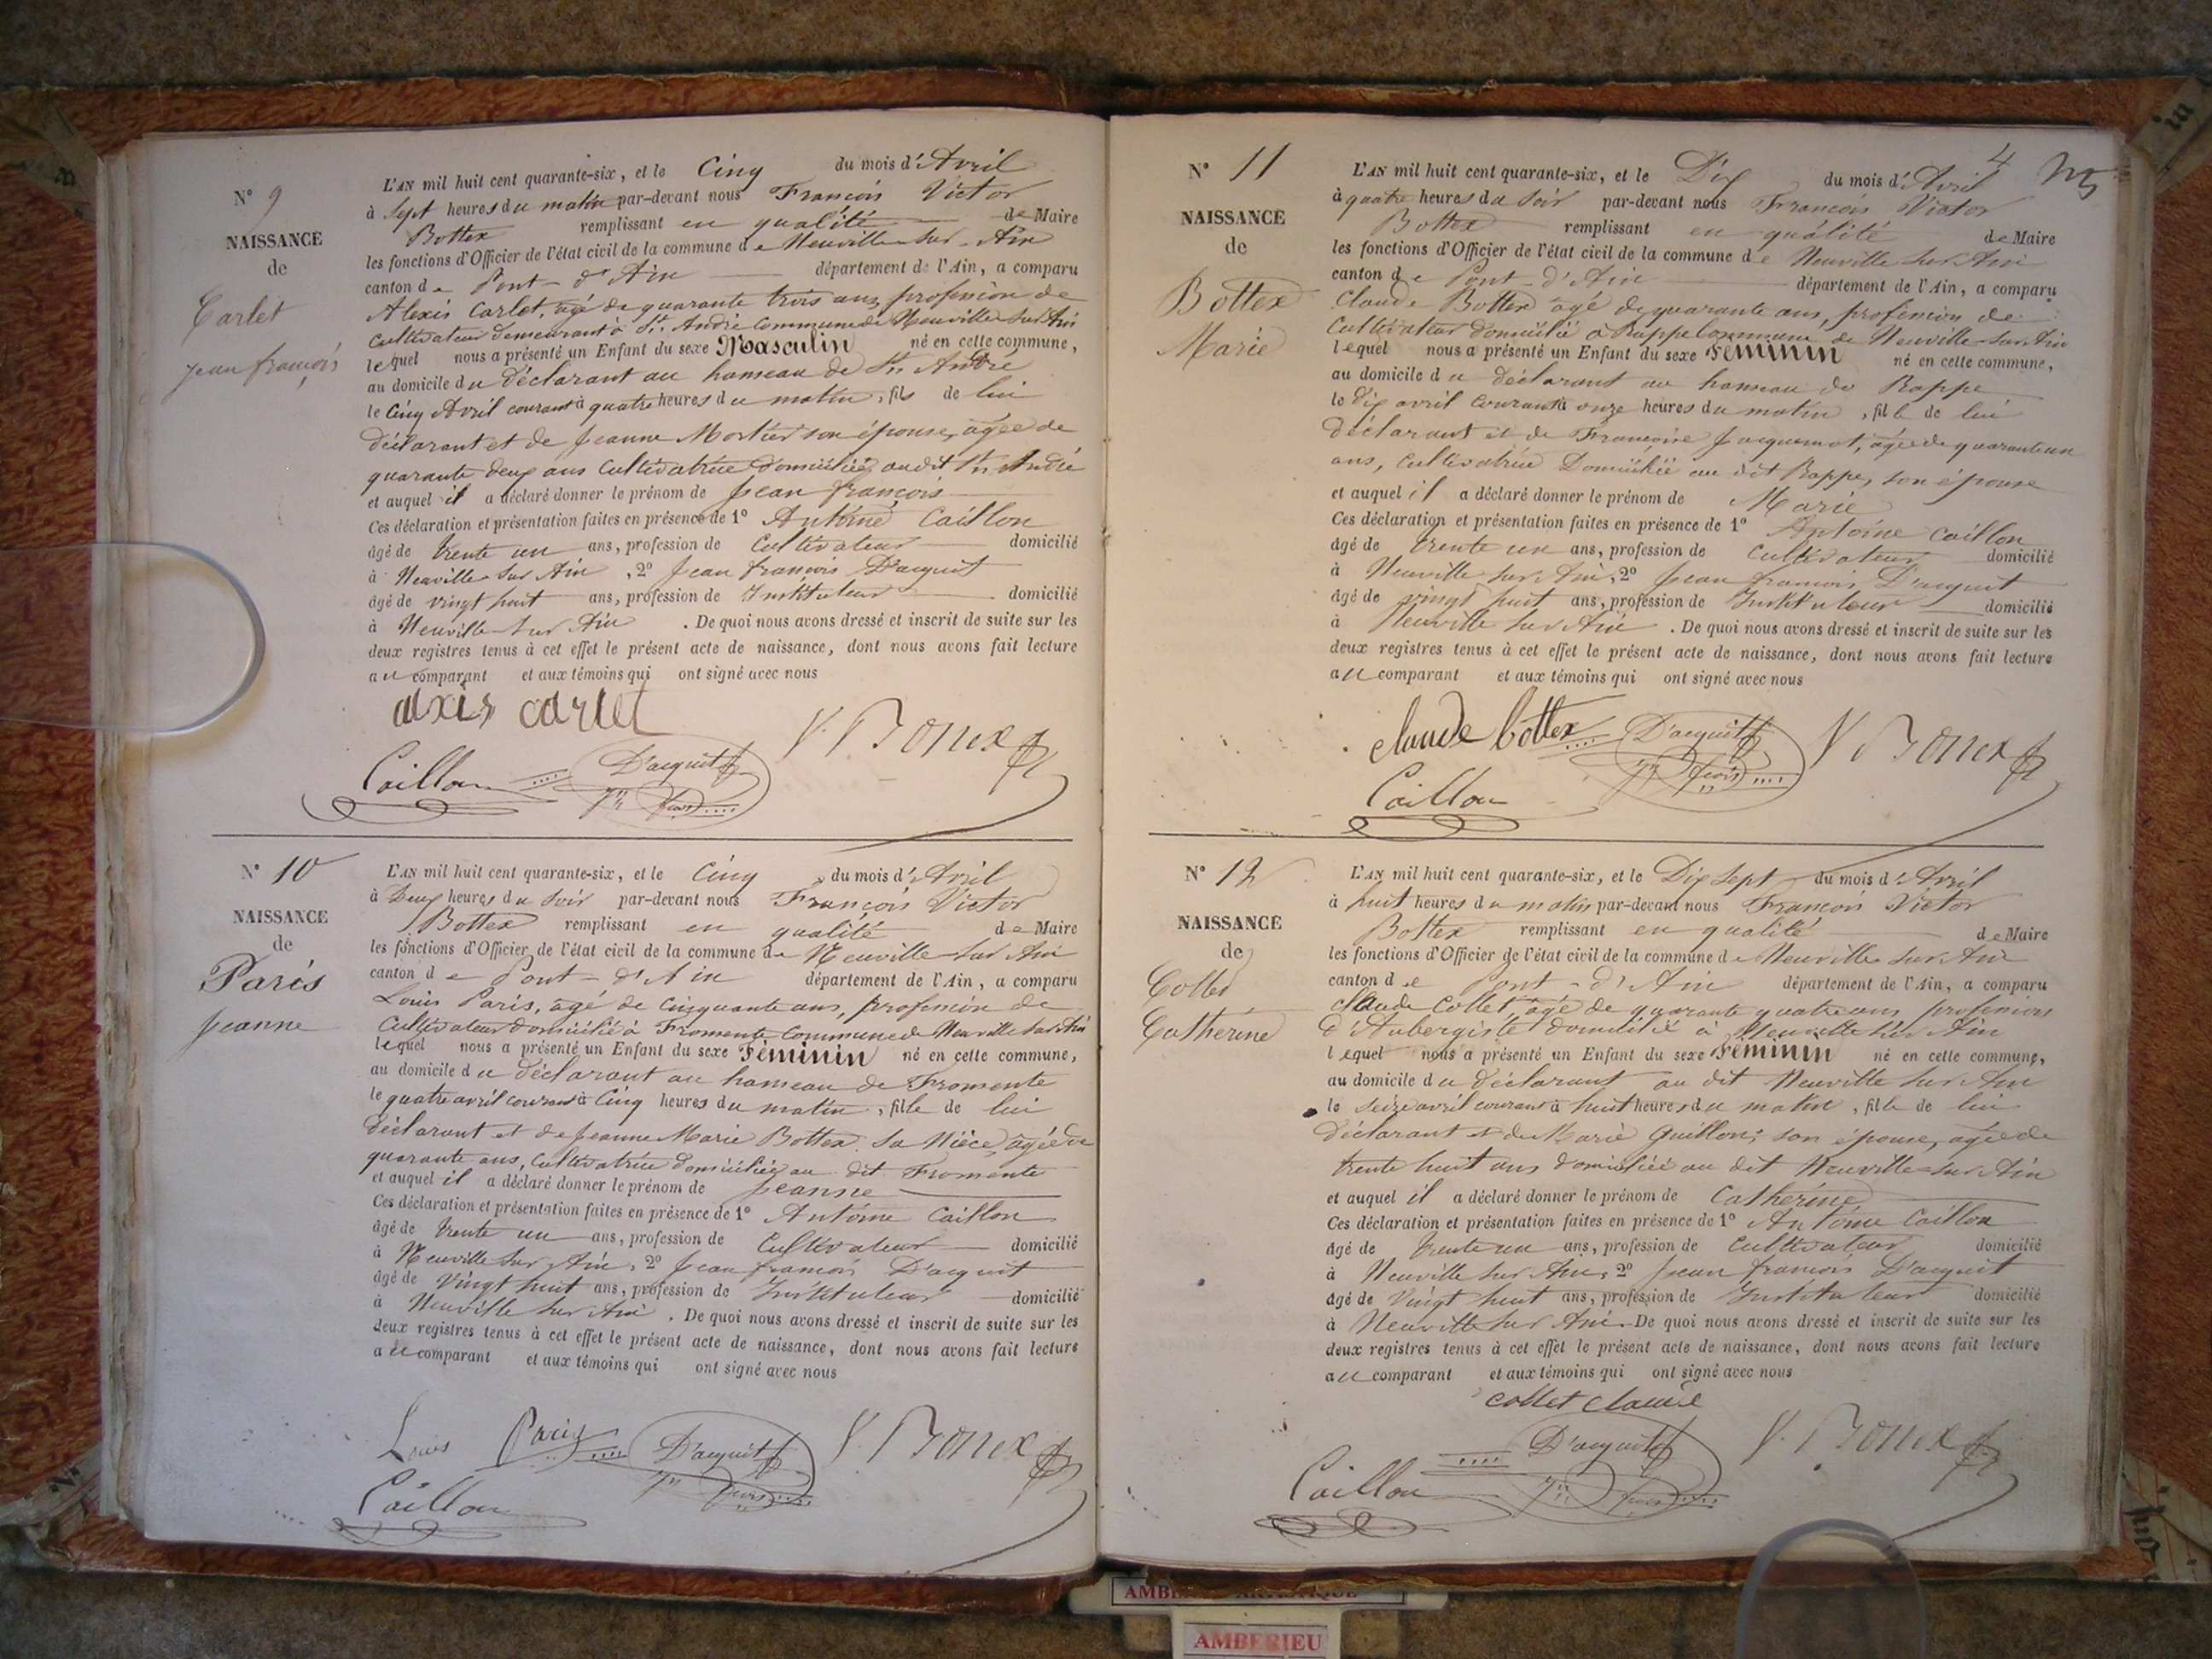 N° 9
NAISSANCE
de
Carlet
jean françois
L'AN mil huit cent quarante-six, et le Cinq du mois d'Avril
à Sept heures du matin par-devant nous François Victor
Bottex remplissant en qualité de Maire
les fonctions d'Officier de l'état civil de la commune de Neuville sur Ain
canton de Pont-d'Ain département de l'Ain, a comparu
Alexis Carlet, agé de quarante trois ans, profession de
Cultivateur demeurant à St. André commune de Neuville sur Ain
lequel nous a présenté un Enfant du sexe Masculin né en cette commune,
au domicile du déclarant au hameau de St. André
le Cinq Avril courant à quatre heures du matin, fils de lui
déclarant et de Jeanne Mortier son épouse, agée de
quarante deux ans Cultivatrice domiciliée audit St. André
et auquel il a déclaré donner le prénom de Jean françois
Ces déclaration et présentation faites en présence de 1° Antoine Caillon
âgé de trente un ans, profession de Cultivateur domicilié
à Neuville sur Ain, 2° Jean françois D'acquit
âgé de vingt huit ans, profession de Instituteur domicilié
à Neuville sur Ain. De quoi nous avons dressé et inscrit de suite sur les
deux registres tenus à cet effet le présent acte de naissance, dont nous avons fait lecture
au comparant et aux témoins qui ont signé avec nous
alxis carlet
V. Bottex
Caillon
D'acquit
Jn fçois
N° 10
NAISSANCE
de
Paris
Jeanne
L'AN mil huit cent quarante-six, et le Cinq du mois d'Avril
à Deux heures du Soir par-devant nous François Victor
Bottex remplissant en qualité de Maire
les fonctions d'Officier de l'état civil de la commune de Neuville sur Ain
canton de Pont-d'Ain département de l'Ain, a comparu
Louis Paris, agé de Cinquante ans, profession de
Cultivateur domicilié à Fromente Commune de Neuville sur Ain
lequel nous a présenté un Enfant du sexe Féminin né en cette commune,
au domicile du déclarant au hameau de Fromente
le quatre avril courant à Cinq heures du matin, fille de lui
déclarant et de Jeanne Marie Bottex sa Nièce, agée de
quarante ans, Cultivatrice domiciliée au dit Fromente
et auquel il a déclaré donner le prénom de Jeanne
Ces déclaration et présentation faites en présence de 1° Antoine Caillon
âgé de trente un ans, profession de Cultivateur domicilié
à Neuville sur Ain, 2° Jean françois D'acquit
âgé de Vingt huit ans, profession de Instituteur domicilié
à Neuville sur Ain. De quoi nous avons dressé et inscrit de suite sur les
deux registres tenus à cet effet le présent acte de naissance, dont nous avons fait lecture
au comparant et aux témoins qui ont signé avec nous
Louis Paris
D'acquit
Jn fçois
V. Bottex
Caillon
4
N° 11
NAISSANCE
de
Bottex
Marie
L'AN mil huit cent quarante-six, et le Dix du mois d'Avril
à quatre heures du Soir par-devant nous François Victor
Bottex remplissant en qualité de Maire
les fonctions d'Officier de l'état civil de la commune de Neuville sur Ain
canton de Pont-d'Ain département de l'Ain, a comparu
Claude Bottex agé de quarante ans, profession de
Cultivateur domicilié à Rappe Commune de Neuville sur Ain
lequel nous a présenté un Enfant du sexe Féminin né en cette commune,
au domicile du déclarant au hameau de Rappe
le dix avril courant à onze heures du matin, fille de lui
déclarant et de Françoise Jacquemot, agée de quarante un
ans, Cultivatrice Domiciliée au dit Rappe, son épouse
et auquel il a déclaré donner le prénom de Marie
Ces déclaration et présentation faites en présence de 1° Antoine Caillon
âgé de trente un ans, profession de Cultivateur domicilié
à Neuville sur Ain, 2° Jean françois D'acquit
âgé de vingt huit ans, profession de Instituteur domicilié
à Neuville sur Ain. De quoi nous avons dressé et inscrit de suite sur les
deux registres tenus à cet effet le présent acte de naissance, dont nous avons fait lecture
au comparant et aux témoins qui ont signé avec nous
claude bottex
D'acquit
Jn fçois
V. Bottex
Caillon
N° 12
NAISSANCE
de
Collet
Catherine
L'AN mil huit cent quarante-six, et le Dix Sept du mois d'Avril
à huit heures du matin par-devant nous François Victor
Bottex remplissant en qualité de Maire
les fonctions d'Officier de l'état civil de la commune de Neuville sur Ain
canton de Pont-d'Ain département de l'Ain, a comparu
Claude Collet agé de quarante quatre ans profession
d'Aubergiste domicilié à Neuville sur Ain
lequel nous a présenté un Enfant du sexe Féminin né en cette commune,
au domicile du déclarant au dit Neuville sur Ain
le seize avril courant à huit heures du matin, fille de lui
déclarant et de Marie Guillon, son épouse, agée de
trente huit ans domiciliée au dit Neuville sur Ain
et auquel il a déclaré donner le prénom de Catherine
Ces déclaration et présentation faites en présence de 1° Antoine Caillon
âgé de trente un ans, profession de Cultivateur domicilié
à Neuville sur Ain, 2° Jean françois D'acquit
âgé de Vingt huit ans, profession de Instituteur domicilié
à Neuville sur Ain. De quoi nous avons dressé et inscrit de suite sur les
deux registres tenus à cet effet le présent acte de naissance, dont nous avons fait lecture
au comparant et aux témoins qui ont signé avec nous
collet claude
D'acquit
Jn fçois
V. Bottex
Caillon
AMBERIEU